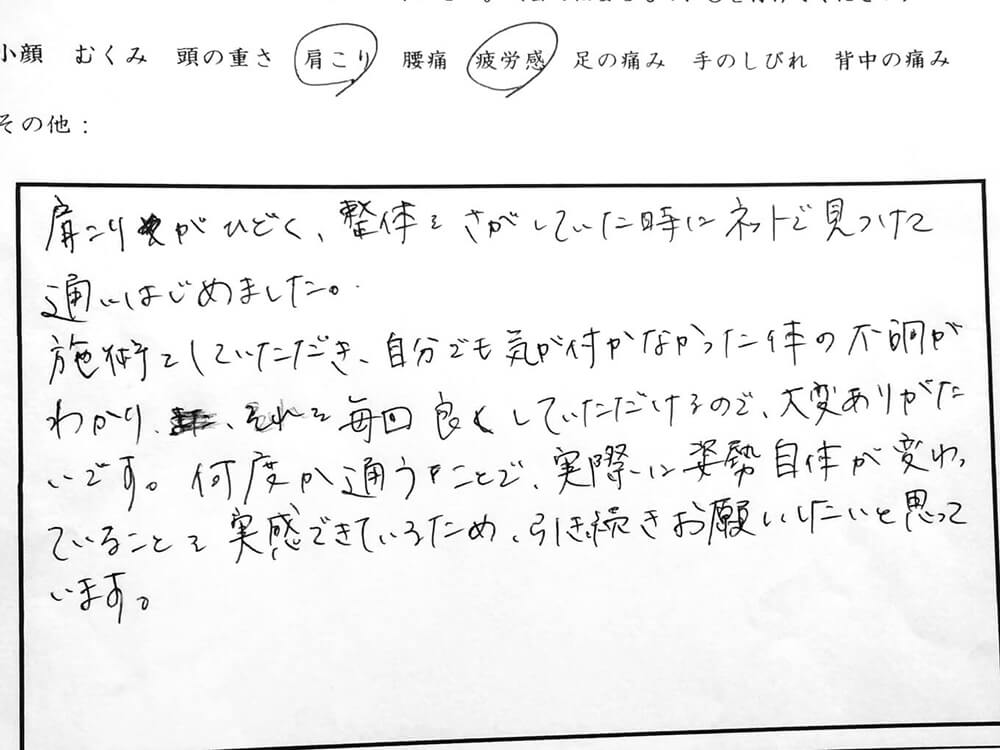 小顔 むくみ 頭の重さ 肩こり 腰痛 疲労感 足の痛み 手のしびれ 背中の痛み
その他：
肩こりがひどく、整体をさがしていた時にネットで見つけて
通いはじめました。
施術をしていただき、自分でも気が付かなかった体の不調が
わかり、、それを毎回良くしていただけるので、大変ありがた
いです。何度か通うことで、実際に姿勢自体が変わっ
ていることを実感できているため、引き続きお願いしたいと思って
います。